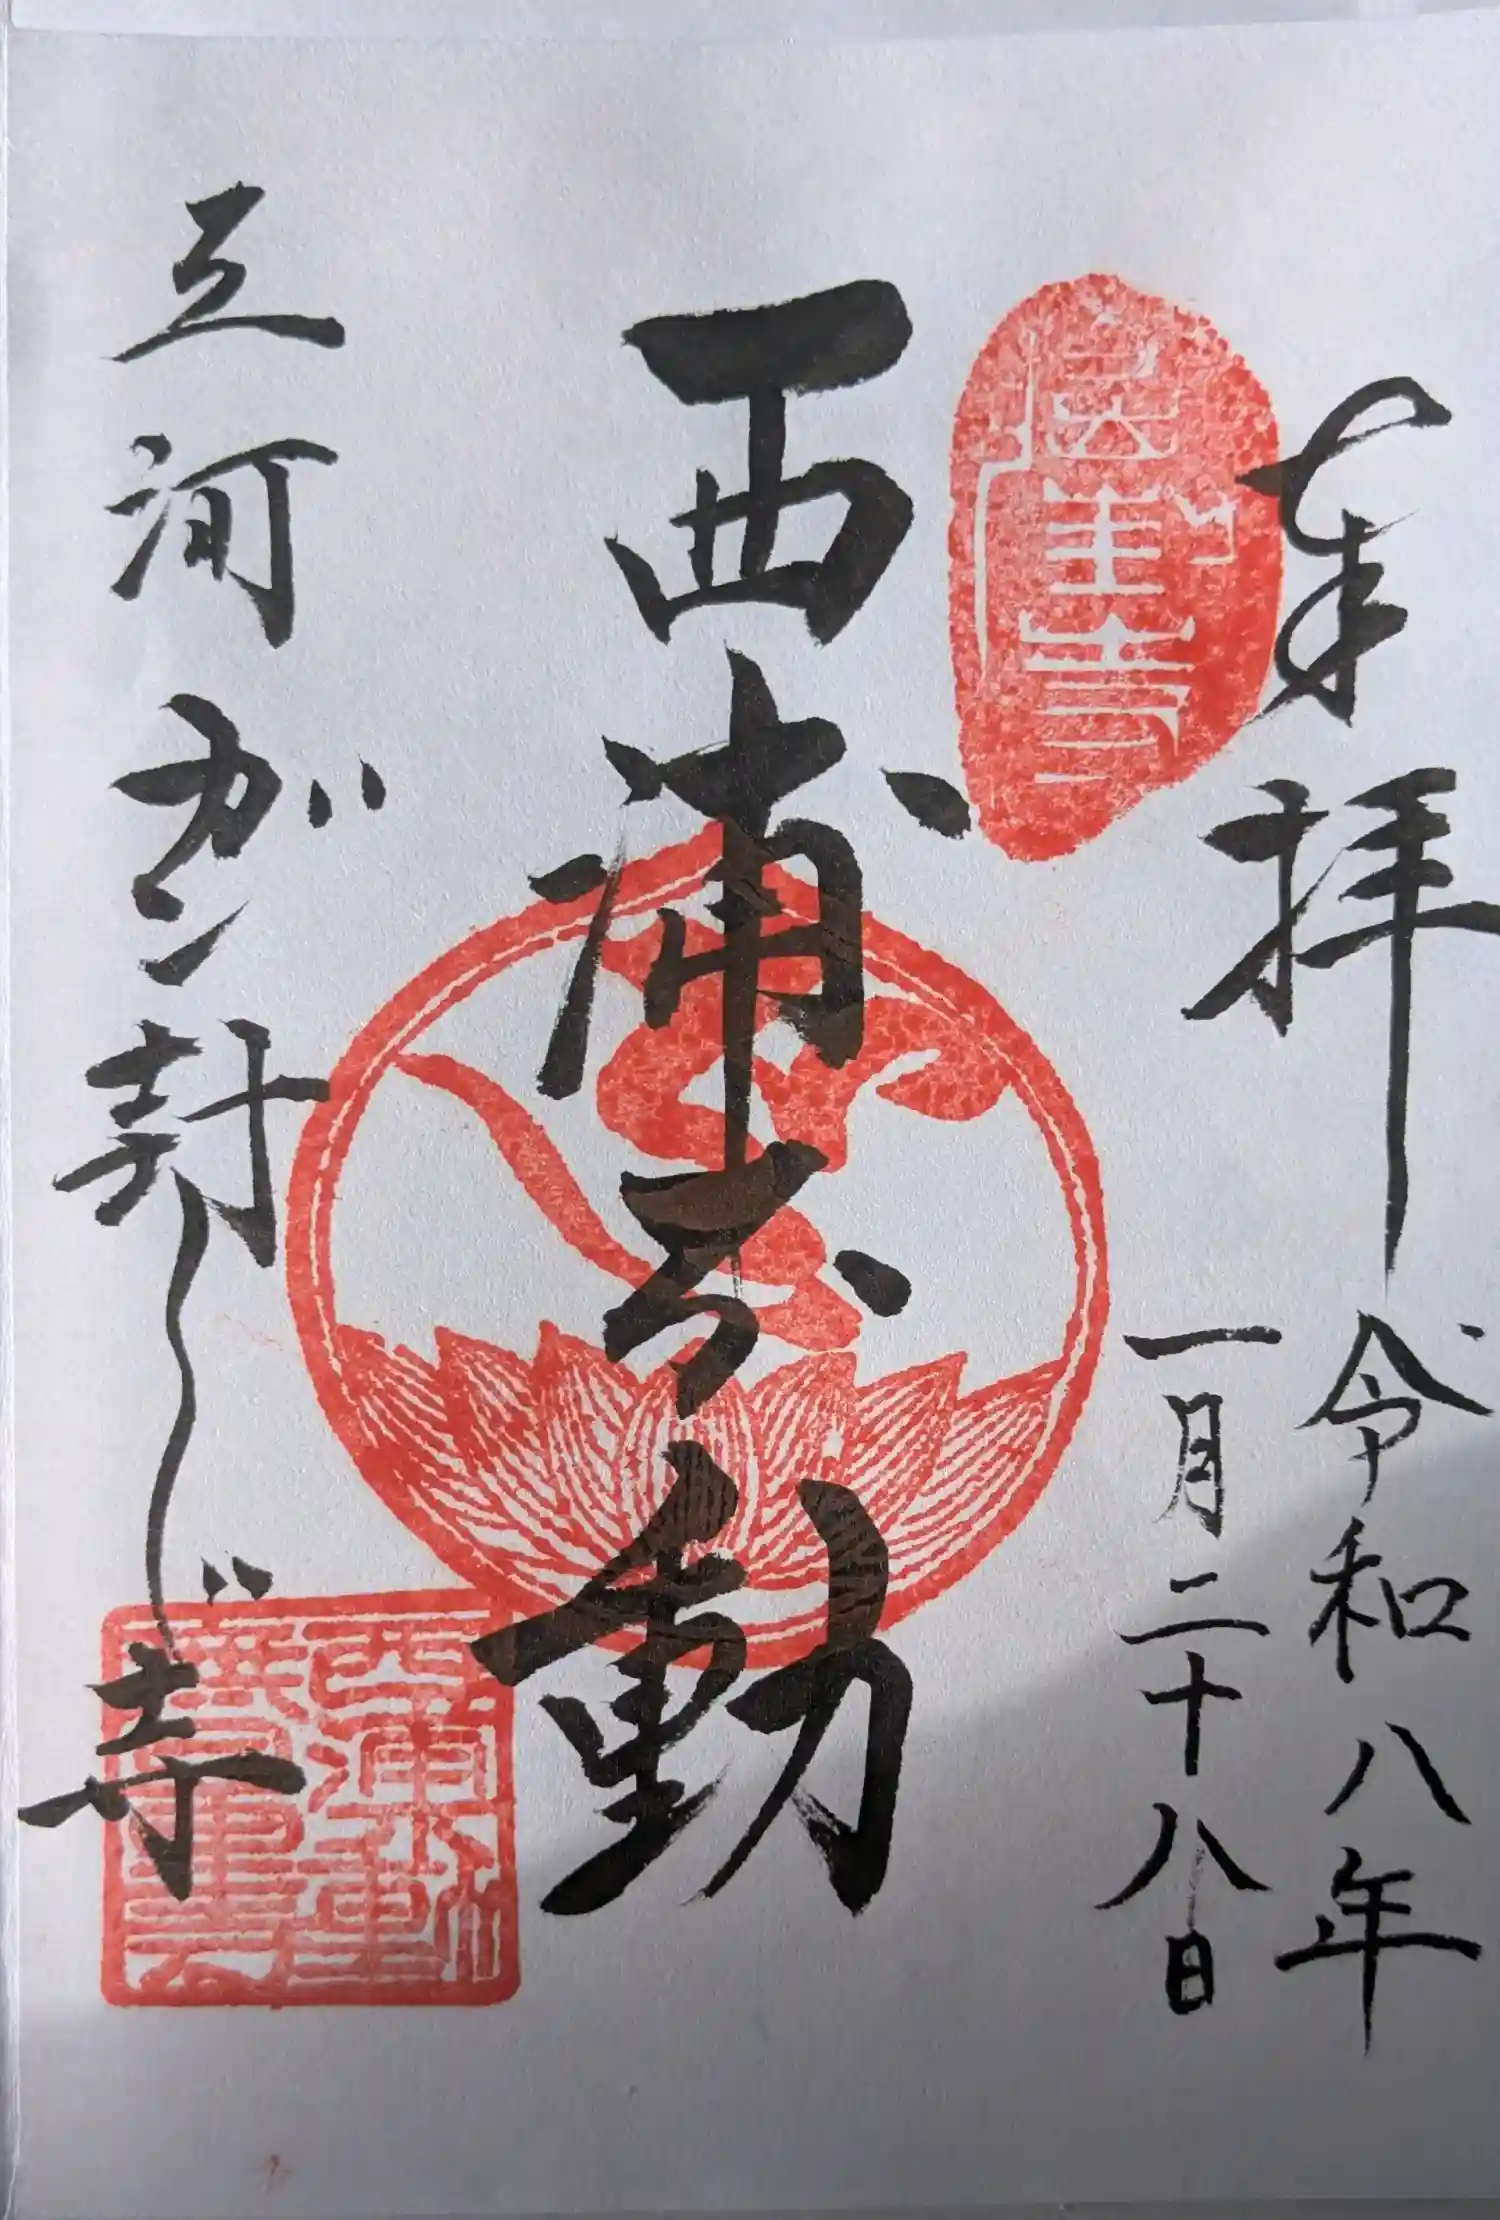 奉拝
令和八年
一月二十八日
西浦不動
三河ガン封じ寺